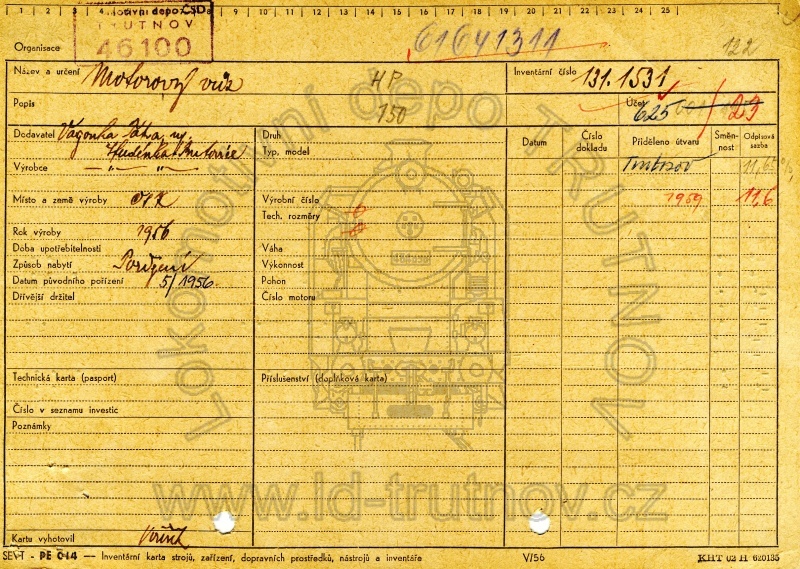 1 2 3 4 8 9 10 11 12 13 14 15 16 17 18 19 20 21 22 23 24 25
Lokomotivní depo ČSD
TRUTNOV
46100
Organisace
61641311
122
Název a určení Motorový vůz
HP
Inventární číslo 131.1531
Popis
150
Účet 625 00 / 23
Dodavatel Vagonka Tatra, n.p.
Studénka Butovice
Výrobce — „ — — „ —
Druh
Typ, model
Datum
Číslo dokladu
Přiděleno útvaru
Směnnost
Odpisová sazba
Trutnov 11,6
1959 11,6
Místo a země výroby
Výrobní číslo
Tech. rozměry
Rok výroby 1956
Doba upotřebitelnosti
Váha
Způsob nabytí Pořízení
Výkonnost
Datum původního pořízení 5/1956
Pohon
Dřívější držitel
Číslo motoru
Technická karta (pasport)
Příslušenství (doplňková karta)
Číslo v seznamu investic
Poznámky
Kartu vyhotovil
SEVT - PE 0-14 — Inventární karta strojů, zařízení, dopravních prostředků, nástrojů a inventáře
V/56
KHT 02 H 620135
Lokomotivní depo TRUTNOV
www.ld-trutnov.cz